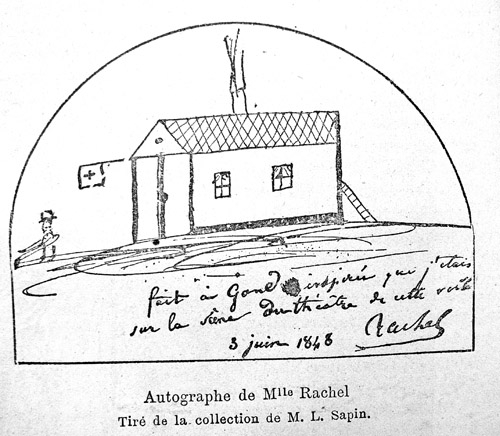 fait à Gand inspirée que j'étais
sur la scène du théâtre de cette ville
3 juin 1848
Rachel
Autographe de Mlle Rachel
Tiré de la collection de M. L. Sapin.